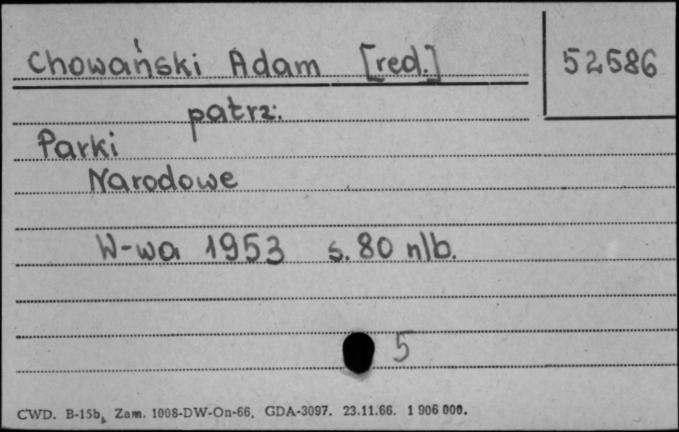 Chowański Adam [red.]
52586
patrz:
Parki
Narodowe
W-wa 1953 s. 80 nlb.
5
CWD. B-15b, Zam. 1008-DW-On-66. GDA-3097. 23.11.66. 1 906 000.